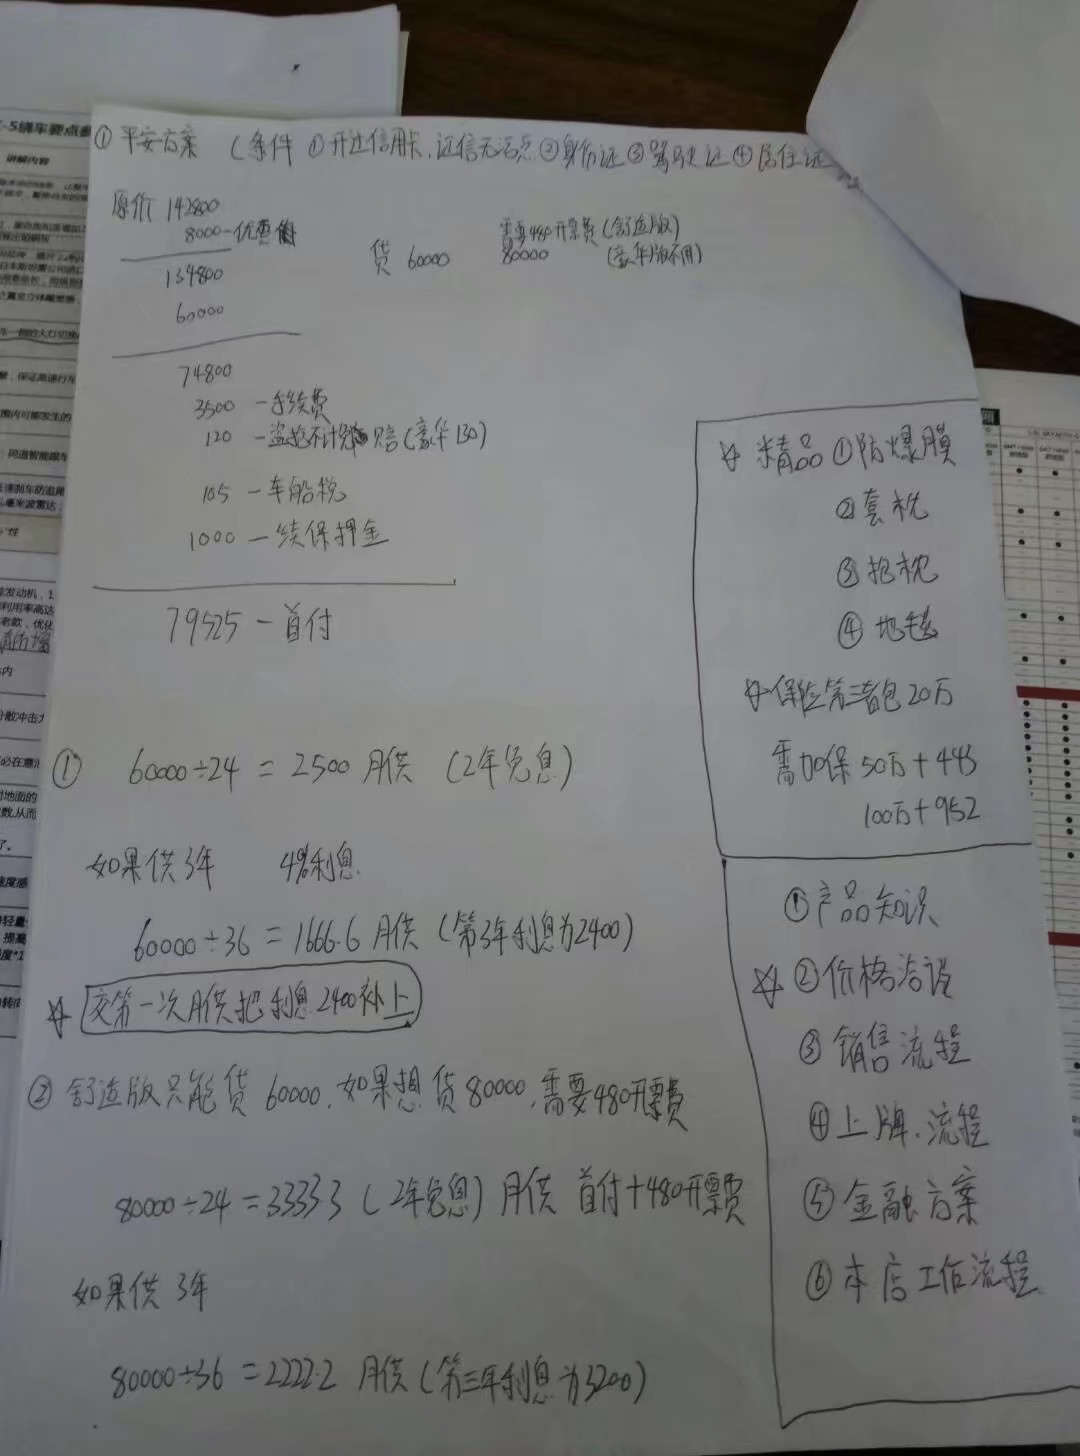 ①平安方案 (条件 ①开过信用卡,征信无污点②身份证③驾驶证④居住证
原价 142800
8000-优惠
134800
60000
贷 60000
需要480开票费(舒适版)
80000 (豪华版不用)
74800
3500 -手续费
120 -盗抢不计 赔(豪华130)
105 -车船税
1000 -续保押金
79525 - 首付
① 60000÷24 = 2500 月供 (2年免息)
如果供3年 4%利息
60000÷36 = 1666.6 月供 (第3年利息为2400)
☆ 交第一次月供把利息2400补上
② 舒适版只能贷60000,如果想贷80000,需要480开票费
80000÷24 = 3333.3 (2年免息) 月供 首付+480开票费
如果供3年
80000÷36 = 2222.2 月供 (第三年利息为3200)
☆ 精品①防爆膜
②套枕
③抱枕
④地毯
☆保险第三者包20万
需加保50万+445
100万+952
①产品知识
☆②价格洽谈
③销售流程
④上牌.流程
⑤金融方案
⑥本店工作流程
讲解内容